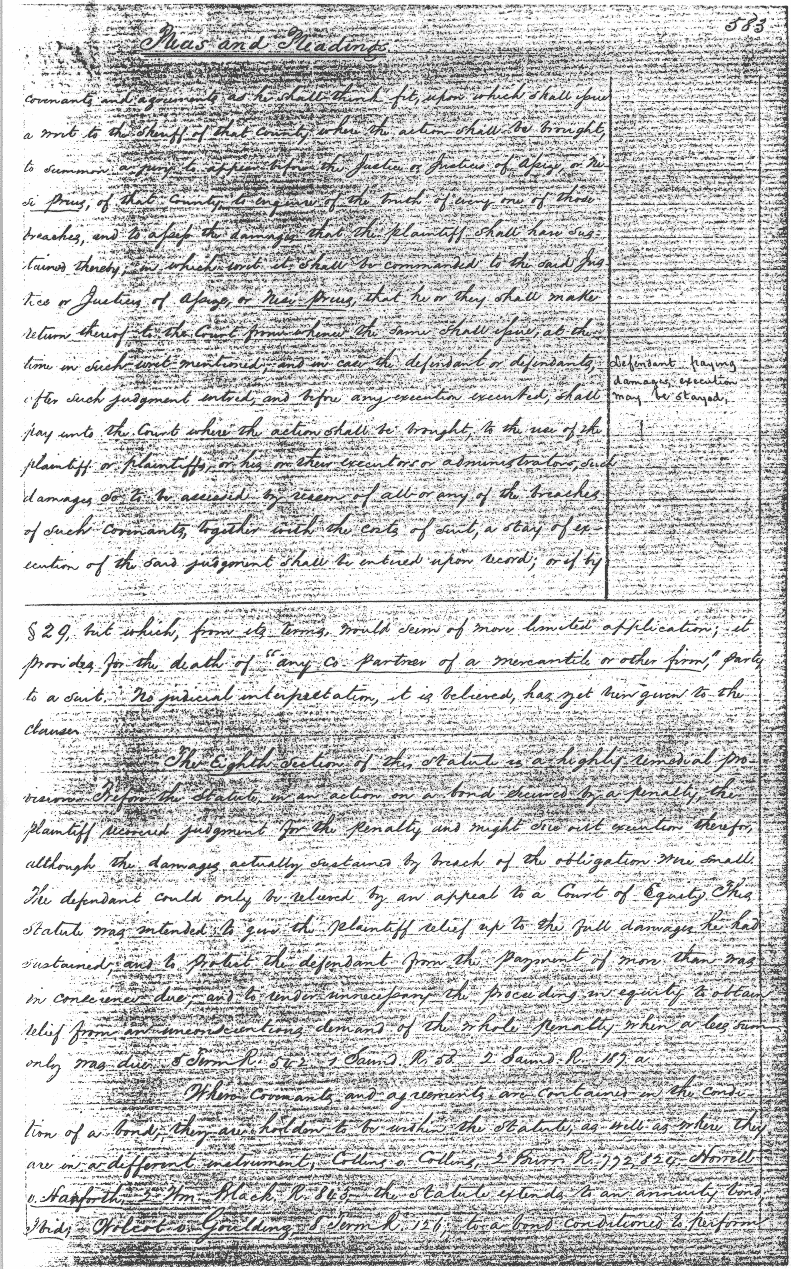 583
Pleas and Pleading.
covenants and agreements as he shall think fit, upon which shall issue
a writ to the Sheriff of that County where the action shall be brought,
to summon a jury to appear before the Justice or Justices of Assize, or Ni-
si Prius, of that County to enquire of the truth of every one of those
breaches, and to assess the damages that the plaintiff shall have sus-
tained thereby; in which writ it shall be commanded to the said Jus-
tice or Justices of Assize, or Nisi Prius, that he or they shall make
return thereof to the Court from whence the same shall issue, at the
time in such writ mentioned; and in case the defendant or defendants,
after such judgment entred, and before any execution executed, shall
pay unto the Court where the action shall be brought, to the use of the
plaintiff or plaintiffs, or his or their executors or administrators, such
damages so to be assessed by reason of all or any of the breaches
of such covenants, together with the costs of suit, a stay of ex-
ecution of the said judgment shall be entered upon record; or if by
Defendant paying
damages, execution
may be stayed.
§ 29, but which, from its terms, would seem of more limited application; it
provides for the death of "any co. partner of a mercantile or other firm," party
to a suit. No judicial interpretation, it is believed, has yet been given to the
clause.
The Eighth section of this statute is a highly remedial pro-
vision. Before the Statute, in an action on a bond secured by a penalty, the
plaintiff recovered judgment for the penalty and might sue out execution therefor,
although the damages actually sustained by breach of the obligation were small.
The defendant could only be relieved by an appeal to a Court of Equity. This
statute was intended to give the plaintiff relief up to the full damages he had
sustained, and to protect the defendant from the payment of more than was
in conscience due, and to render unnecessary the proceeding in equity to obtain
relief from an unconscientious demand of the whole penalty when a less sum
only was due. 5 Term R. 542. 1 Saund. R. 58. 2 Saund. R. 187 a.
When covenants and agreements are contained in the condi-
tion of a bond, they are holden to be within the statute, as well as where they
are in a different instrument, Collins v. Collins, 2 Burr. R. 772, 824; Howell
v. Hanforth, 2 Wm. Black. R. 843; the statute extends to an annuity bond,
Ibid; Wolcot v. Goulding, 8 Term R. 126; to a bond conditioned to perform